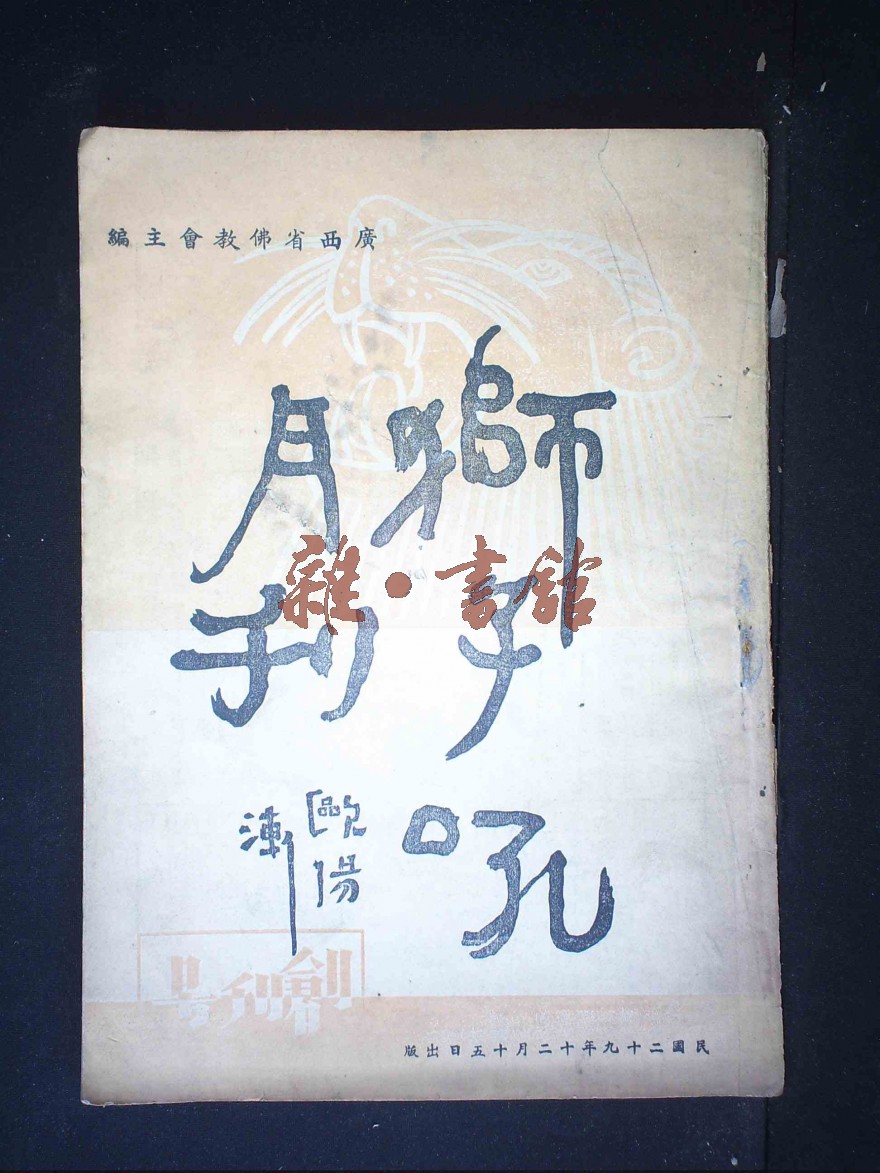 廣西省佛教會主編
獅子吼
月刊
歐陽
漸
創刊號
民國二十九年十二月十五日出版
雜·書舘